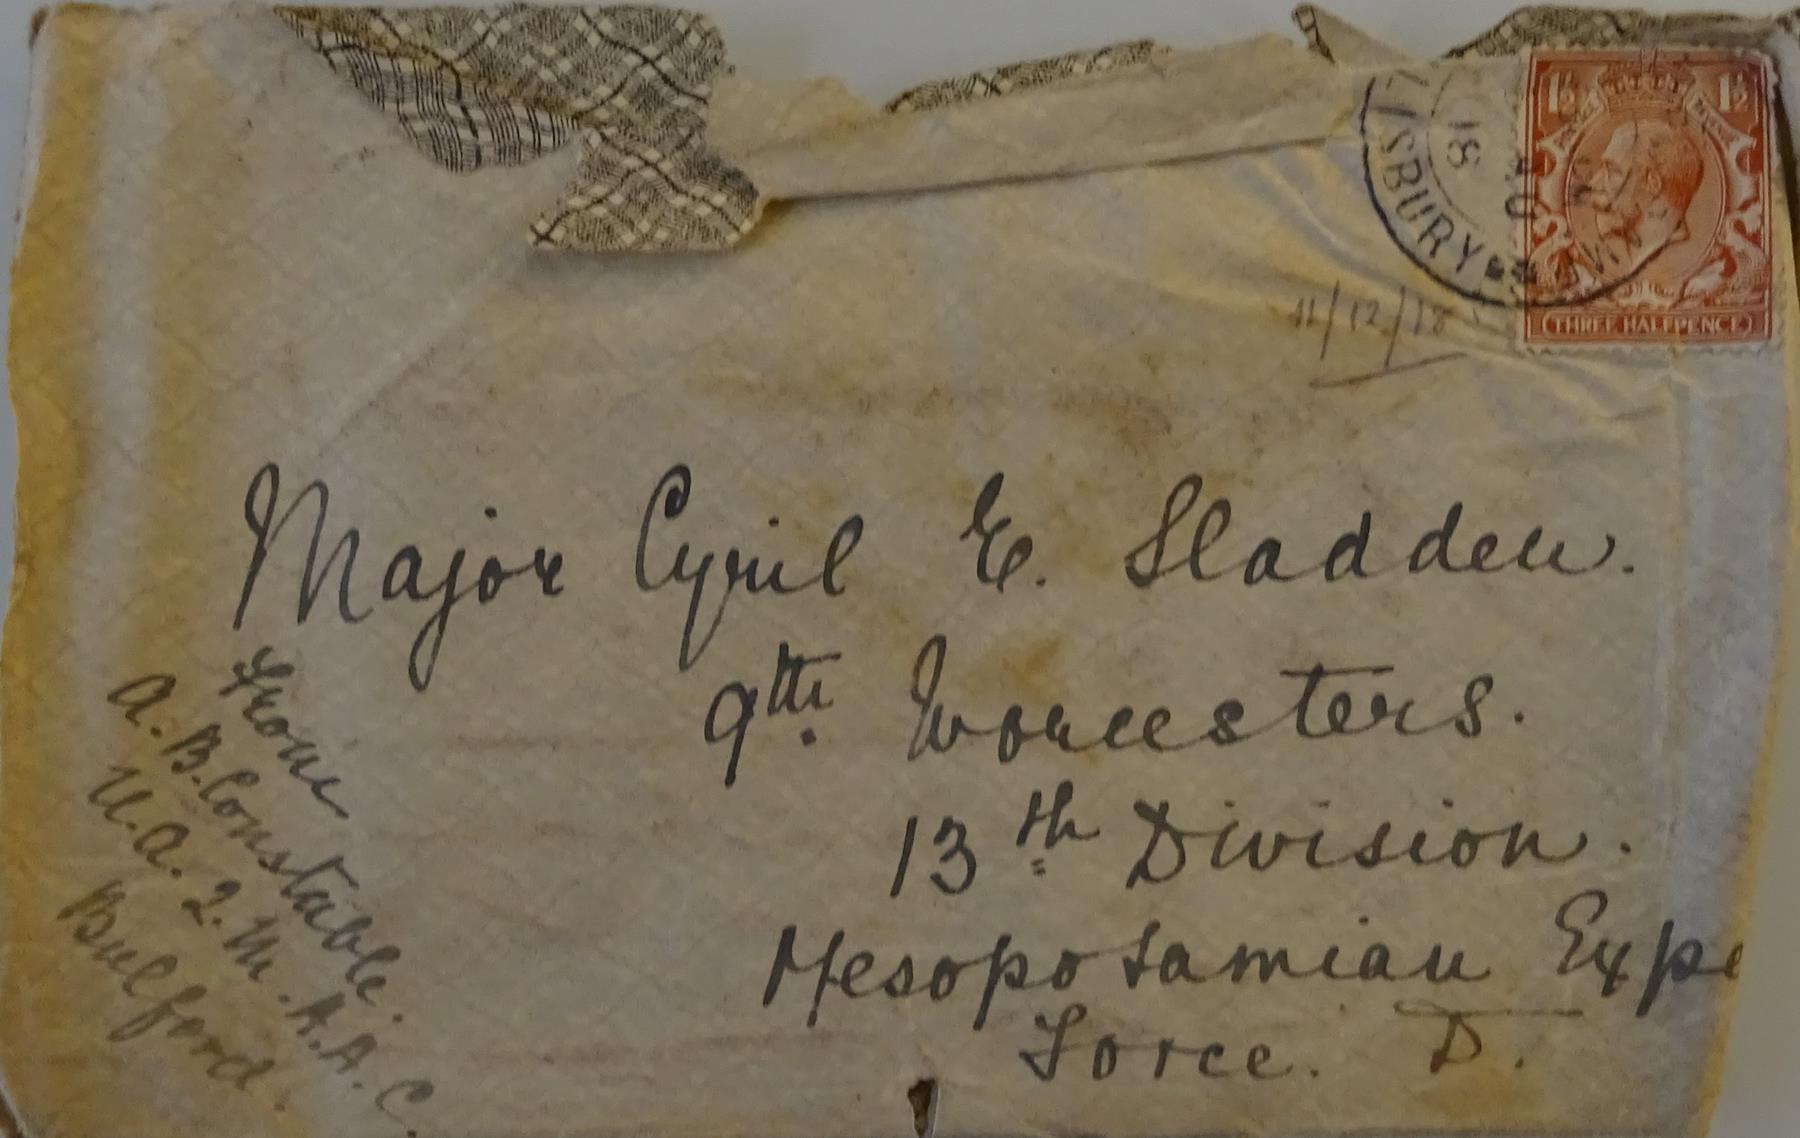 1½ 1½
THREE HALFPENCE
ISBURY
18
11/12/18
Major Cyril E. Sladden.
9th. Worcesters.
13th Division.
Mesopotamian Expe
Force. D.
From
A. B. Constable.
Q. M. A. A. C.
Bulford.